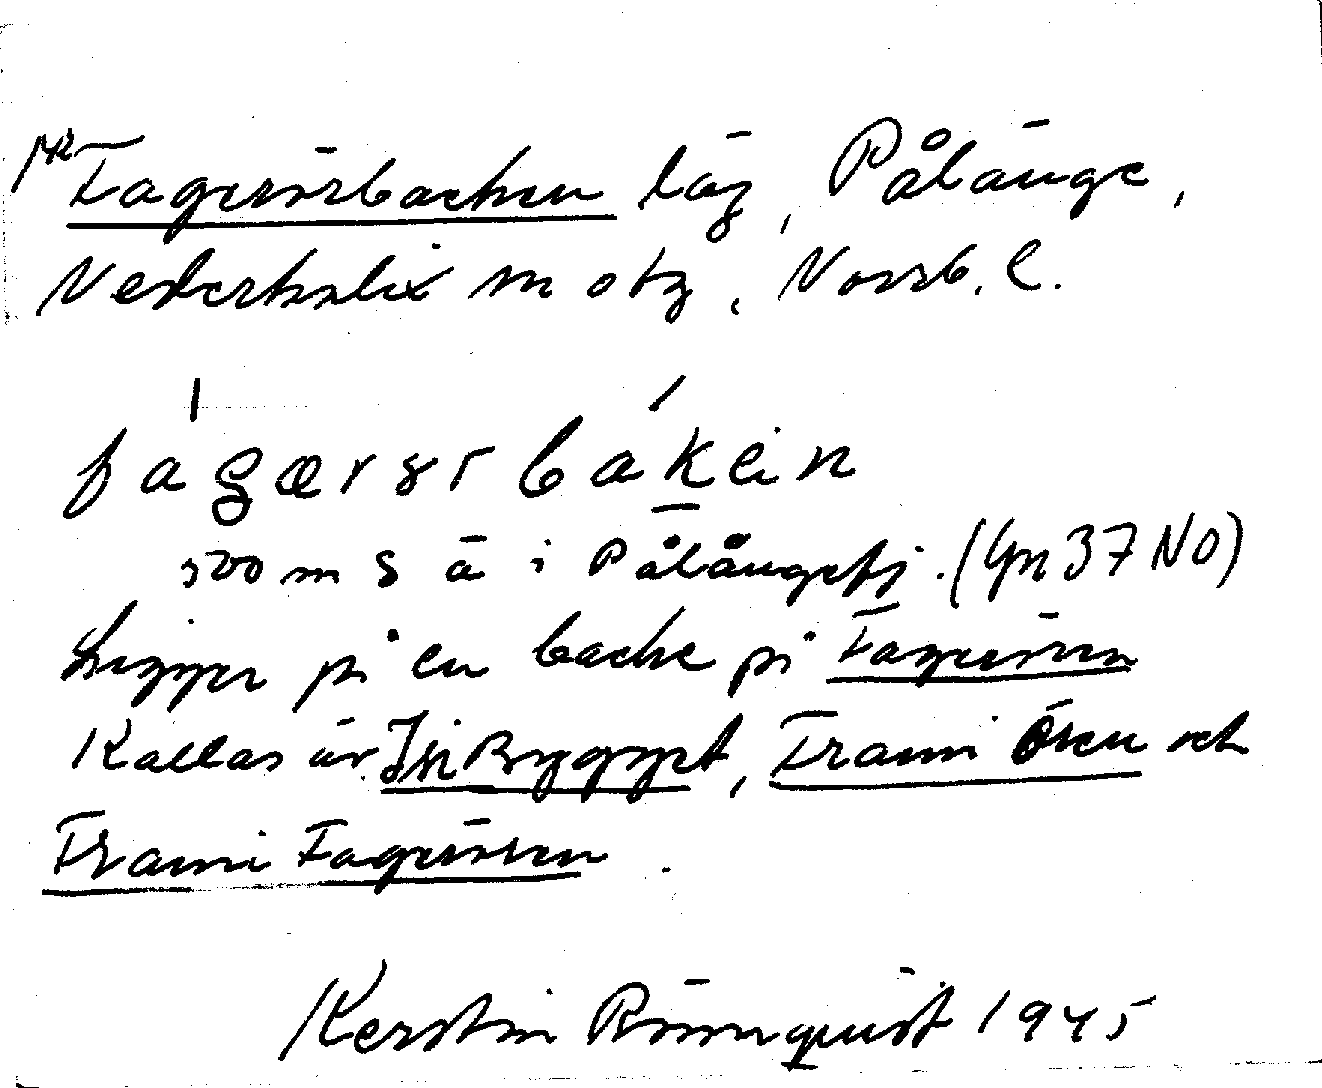 Fagerörbacken läg, Pålänge,
Nederkalix m otg, Norrb. l.
fagærørbakein
500 m S ä i Pålängefj. (Gn 37 NO)
Ligger på en backe på Fagerören
Kallas äv. , Frami Ören och
Frami Fagerören.
Kerstin Rönnquist 1945